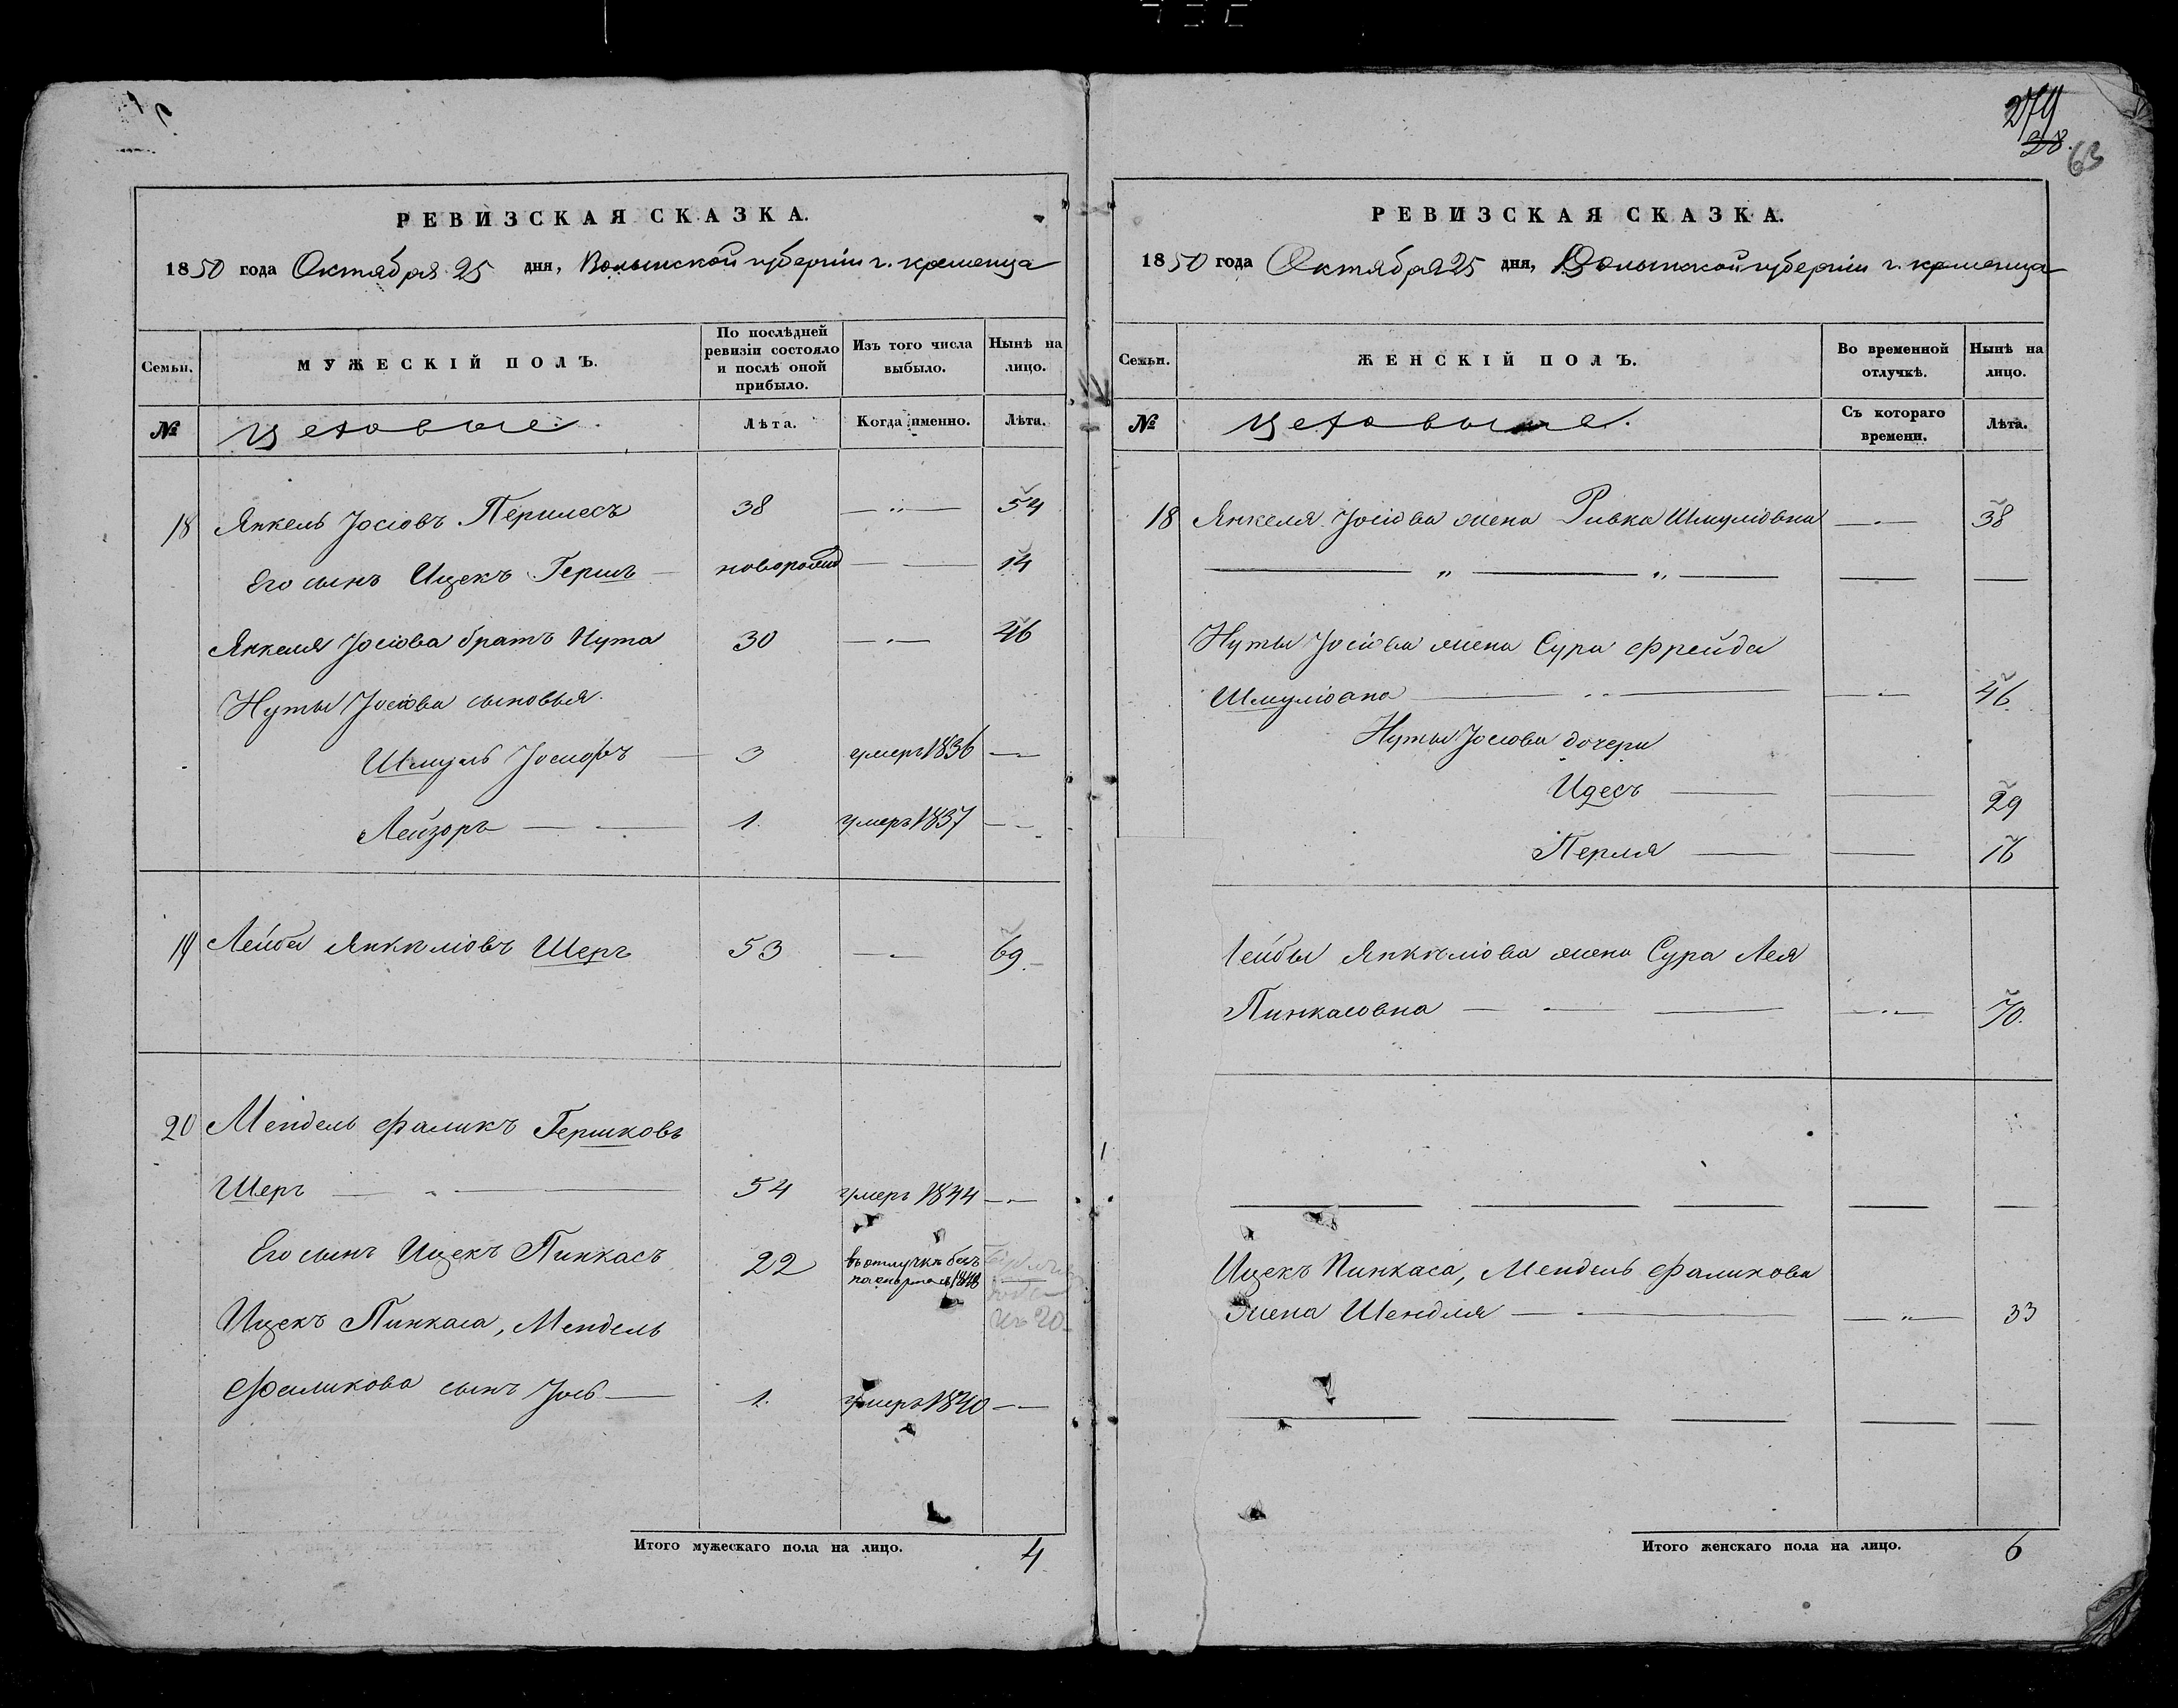 279
38.
63
РЕВИЗСКАЯ СКАЗКА.
1850 года Октября 25 дня, Волынской губерніи г. кременца
Семьи.
МУЖЕСКІЙ ПОЛЪ.
По послѣдней ревизіи состояло и послѣ оной прибыло.
Изъ того числа выбыло.
Нынѣ на лицо.
№
цеховые.
Лѣта.
Когда именно.
Лѣта.
18 Янкель Іосіовъ Перилесъ 38 54
Его сынъ Ицекъ Гершъ новорожд 14
Янкеля Іосіова братъ Нута 30 46
Нуты Іосіова сыновья.
Шмуль Іосіовъ 3 умеръ 1836
Лейзоръ 1. умеръ 1837
19 Лейба Янкеліовъ Шеръ 53 69
20 Мендель Фаликъ Гершковъ
Шеръ 54 умеръ 1844
Его сынъ Ицекъ Пинкасъ 22 въ отлучкѣ безъ
паспорта 1848
Ицекъ Пинкаса, Мендель
Фаликова сынъ Іось 1. умеръ 1840
Итого мужескаго пола на лицо. 4
РЕВИЗСКАЯ СКАЗКА.
1850 года Октября 25 дня, Волынской губерніи г. кременца
Семьи.
ЖЕНСКІЙ ПОЛЪ.
Во временной отлучкѣ.
Нынѣ на лицо.
№
цеховые.
Съ котораго времени.
Лѣта.
18 Янкеля Іосіова жена Ривка Шмуліовна 38
Нуты Іосіова жена Сура Фрейда
Шмуліовна 46
Нуты Іосіова дочери
Идесъ 29
Перля 16
Лейбы Янкеліова жена Сура Лея
Пинкасовна 70.
Ицекъ Пинкаса, Мендель Фаликова
жена Шендля 33
Итого женскаго пола на лицо. 6